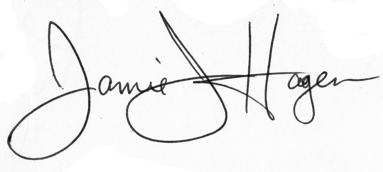 Jamie J Hagen